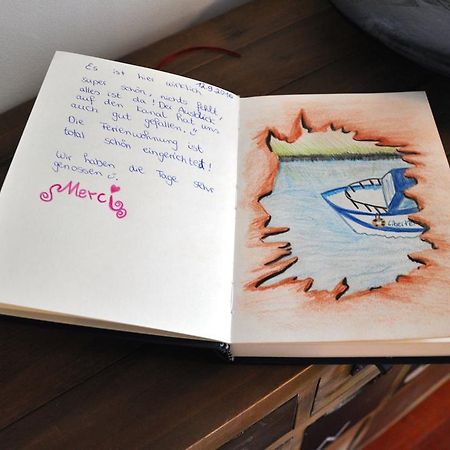 12.9.2016
Es ist hier wirklich
super schön, nichts fehlt,
alles ist da! Der Ausblick
auf den Kanal hat uns
auch gut gefallen.
Die Ferienwohnung ist
total schön eingerichtet!
Wir haben die Tage sehr
genossen
Merci